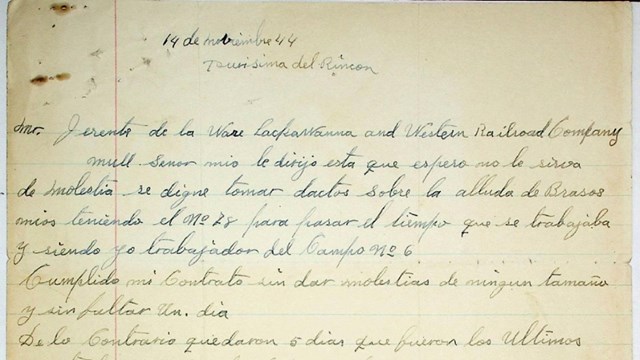 14 de noviembre 44
Purisima del Rincon
Mr. Jerente de la Ware Lackawanna and Western Railroad Company
mull Senor mio le dirijo esta que espero no le sirva
de molestia se digne tomar dactos sobre la alluda de Brasos
mios teniendo el No 28 para pasar el tiempo que se trabajaba
y siendo yo trabajador del Campo No 6
Cumplido mi Contrato sin dar molestias de ningun tamaño
y sin faltar Un. dia
De lo Contrario quedaron 5 dias que fueron los Ultimos